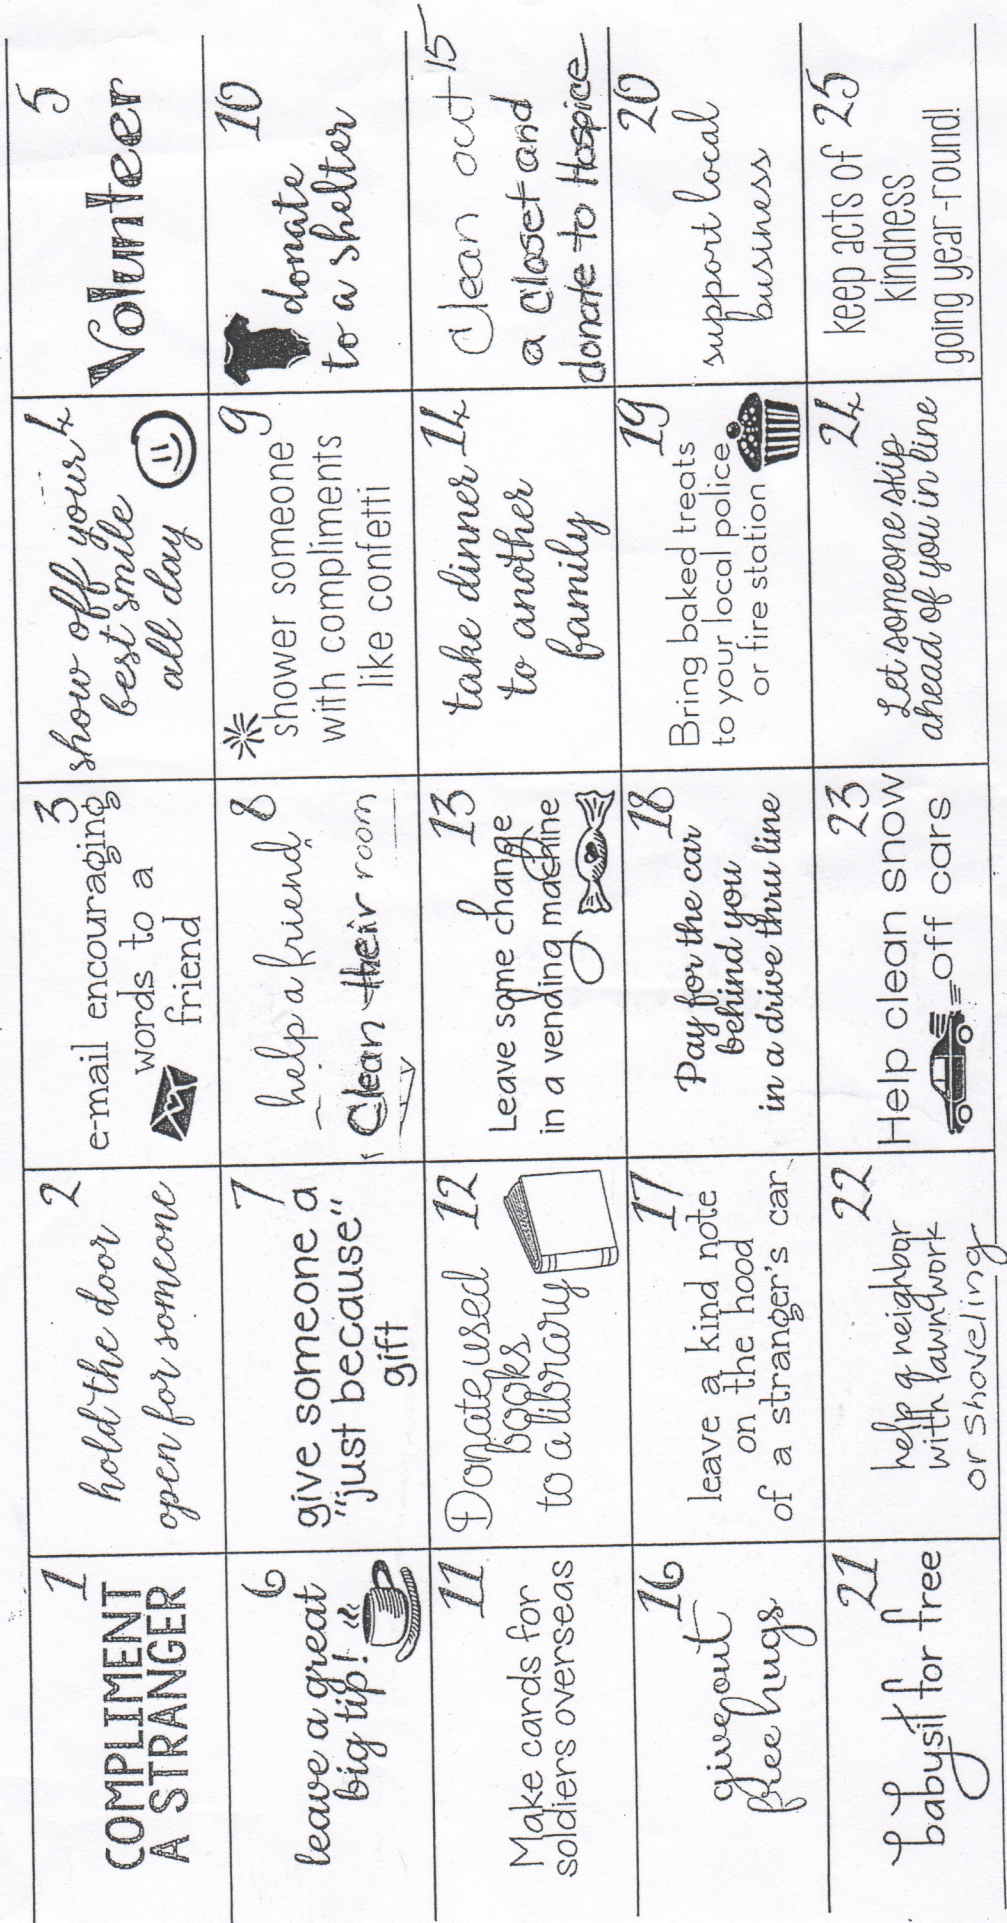 1
COMPLIMENT
A STRANGER
2
hold the door
open for someone
3
e-mail encouraging
words to a
friend
4
show off your
best smile
all day
5
Volunteer
6
leave a great
big tip!
7
give someone a
"just because"
gift
8
help a friend
Clean their room
9
shower someone
with compliments
like confetti
10
donate
to a shelter
11
Make cards for
soldiers overseas
12
Donate used
books
to a library
13
Leave some change
in a vending machine
14
take dinner
to another
family
15
Clean out
a closet and
donate to Hospice
16
give out
free hugs
17
leave a kind note
on the hood
of a stranger's car
18
Pay for the car
behind you
in a drive thru line
19
Bring baked treats
to your local police
or fire station
20
support local
business
21
babysit for free
22
help a neighbor
with lawn work
or shoveling
23
Help clean snow
off cars
24
Let someone skip
ahead of you in line
25
keep acts of
kindness
going year-round!